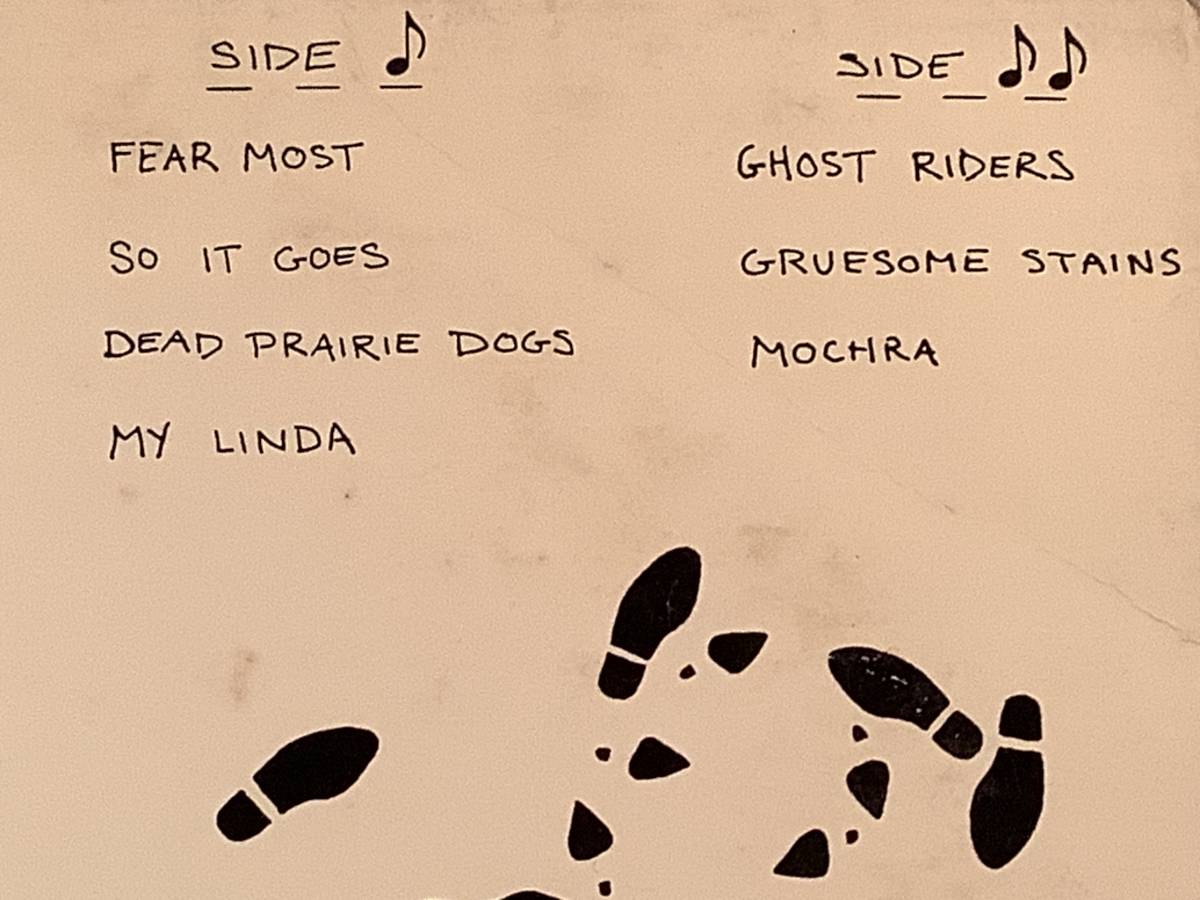 SIDE ♪
FEAR MOST
SO IT GOES
DEAD PRAIRIE DOGS
MY LINDA
SIDE ♪♪
GHOST RIDERS
GRUESOME STAINS
MOCHRA